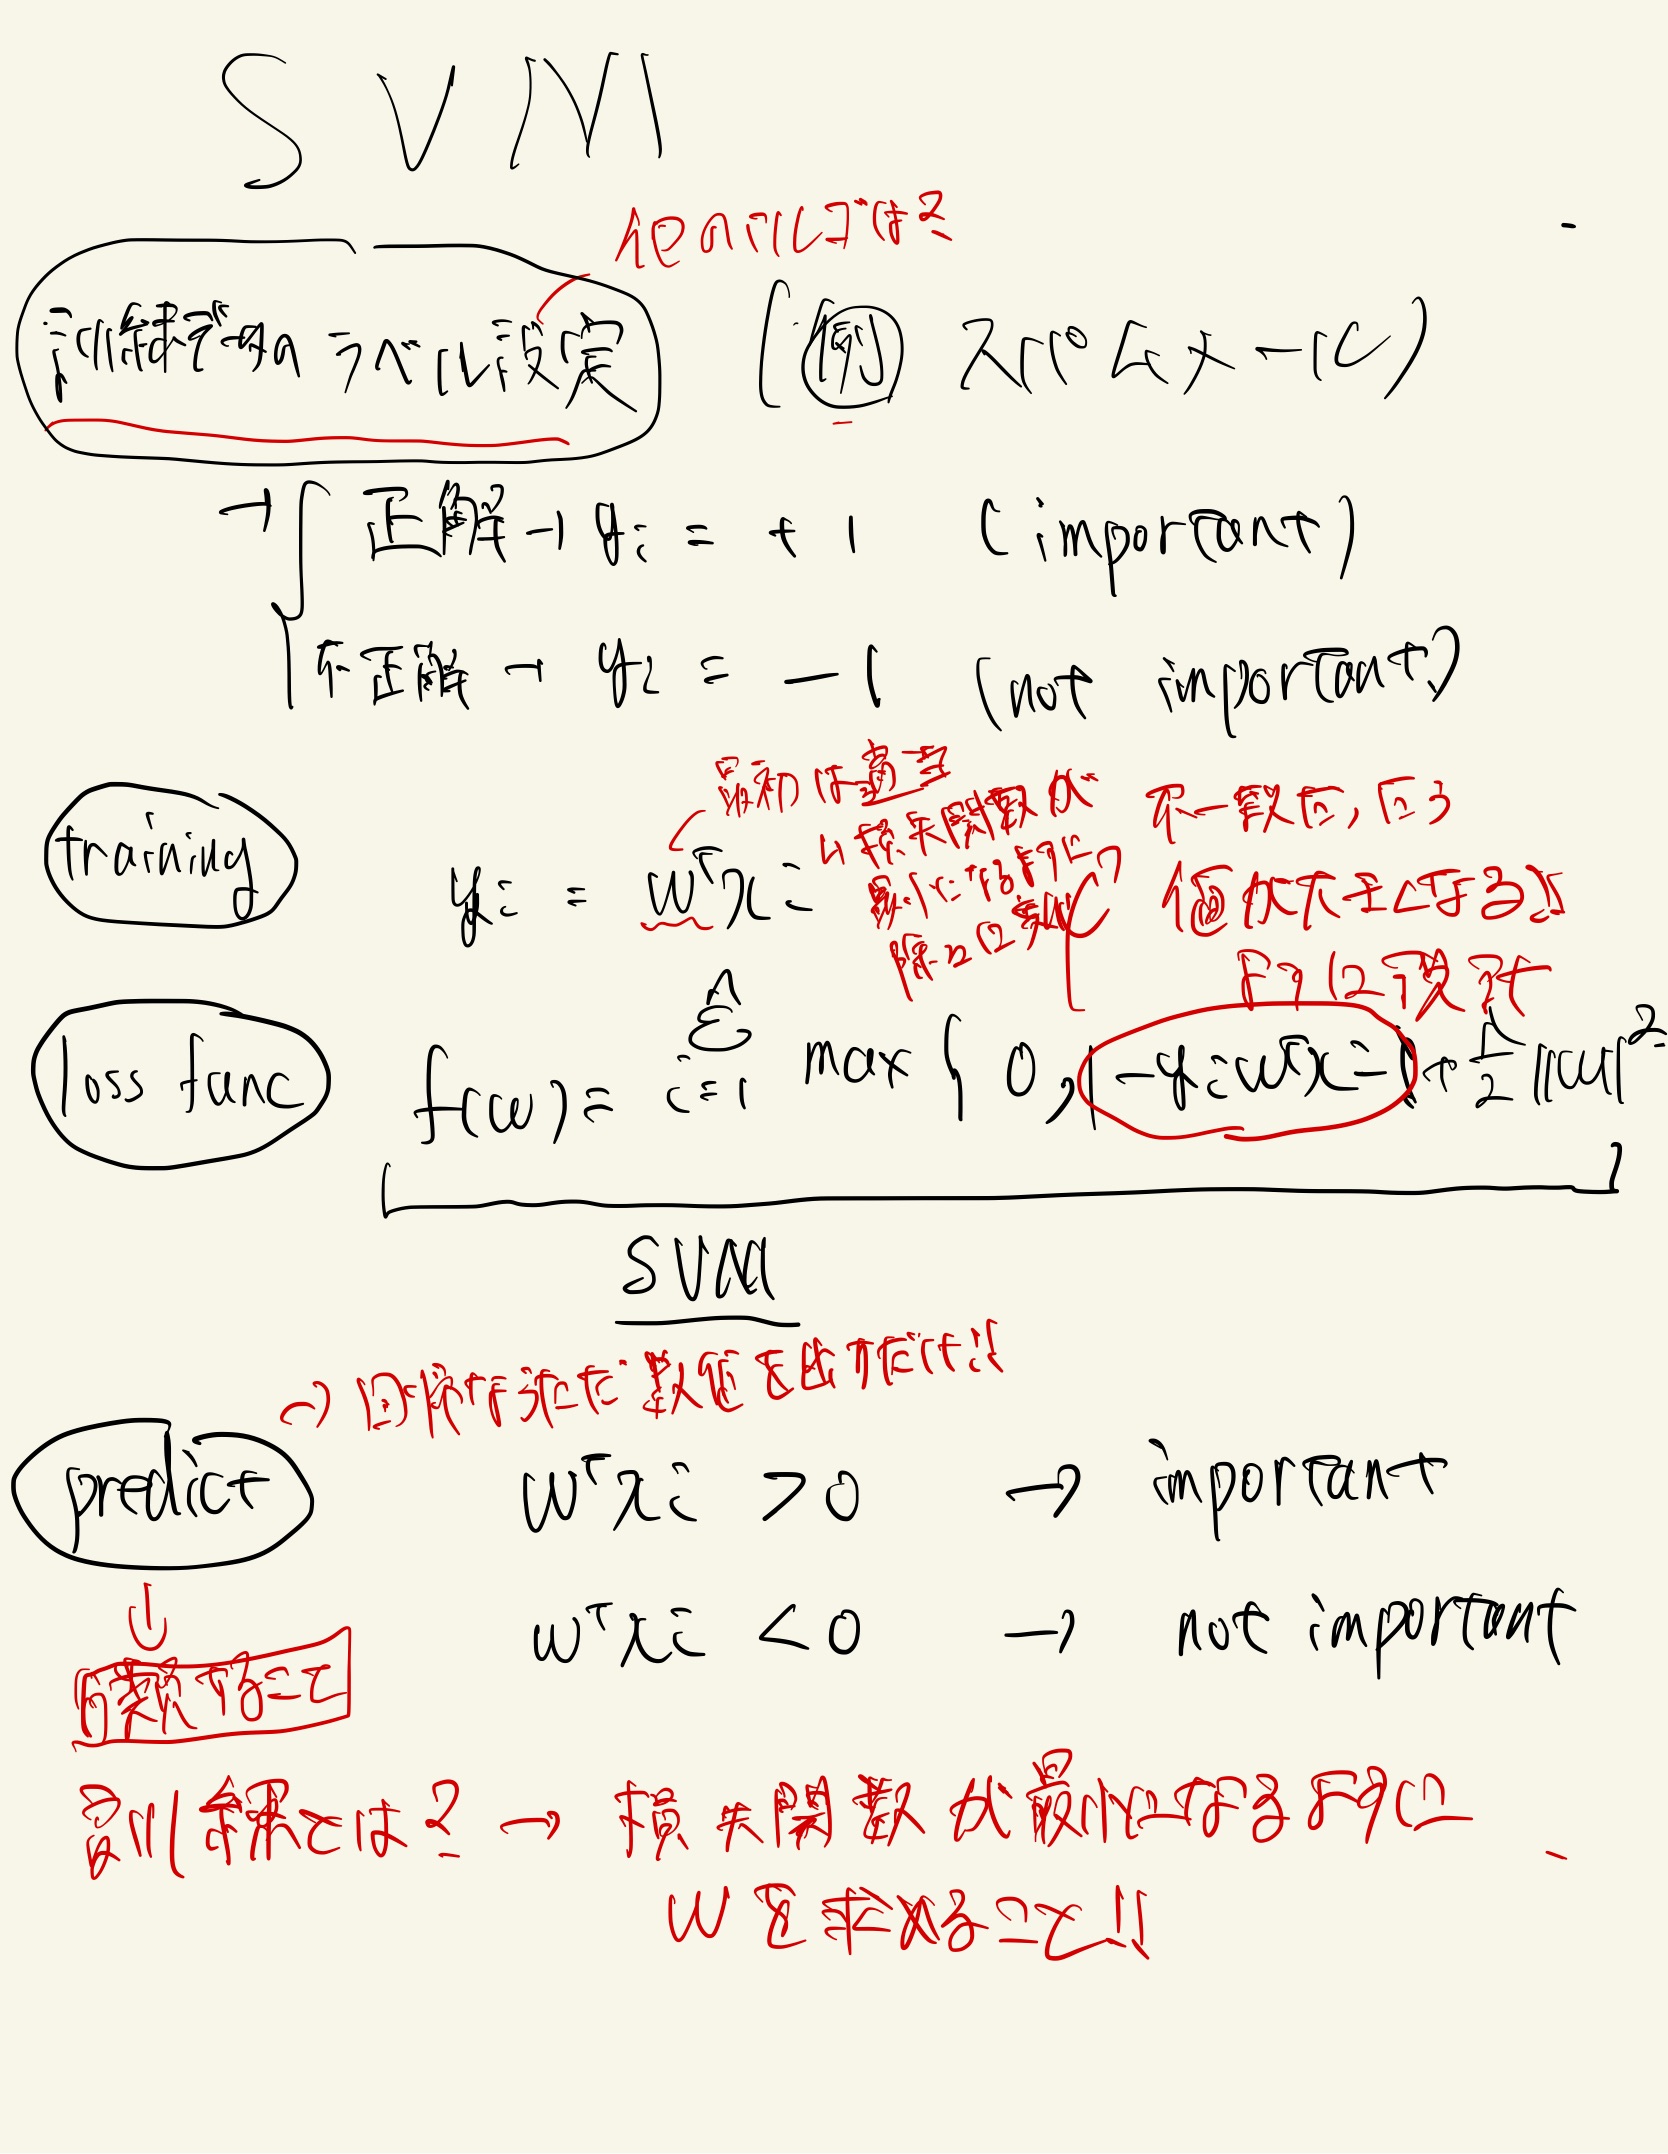 SVM
他のアルゴは?
訓練データのラベル設定 (例 スパムメール)
→ 正解→ yi = +1 (important)
不正解→ yi = -1 (not important)
最初は適当
↳損失関数が
最小になるように
不一致な
値が大きくなる
ように設計
training yi = wᵀxi
loss func f(w) = Σ i=1 max { 0, 1-yiwᵀxi } + λ/2 ||w||²
SVM
→ 回帰 数値を出すだけ!!
predict wᵀxi > 0 → inportant
wᵀxi < 0 → not important
↓
分類すること
訓練とは? → 損失関数が最小になるように
wを求めること!!